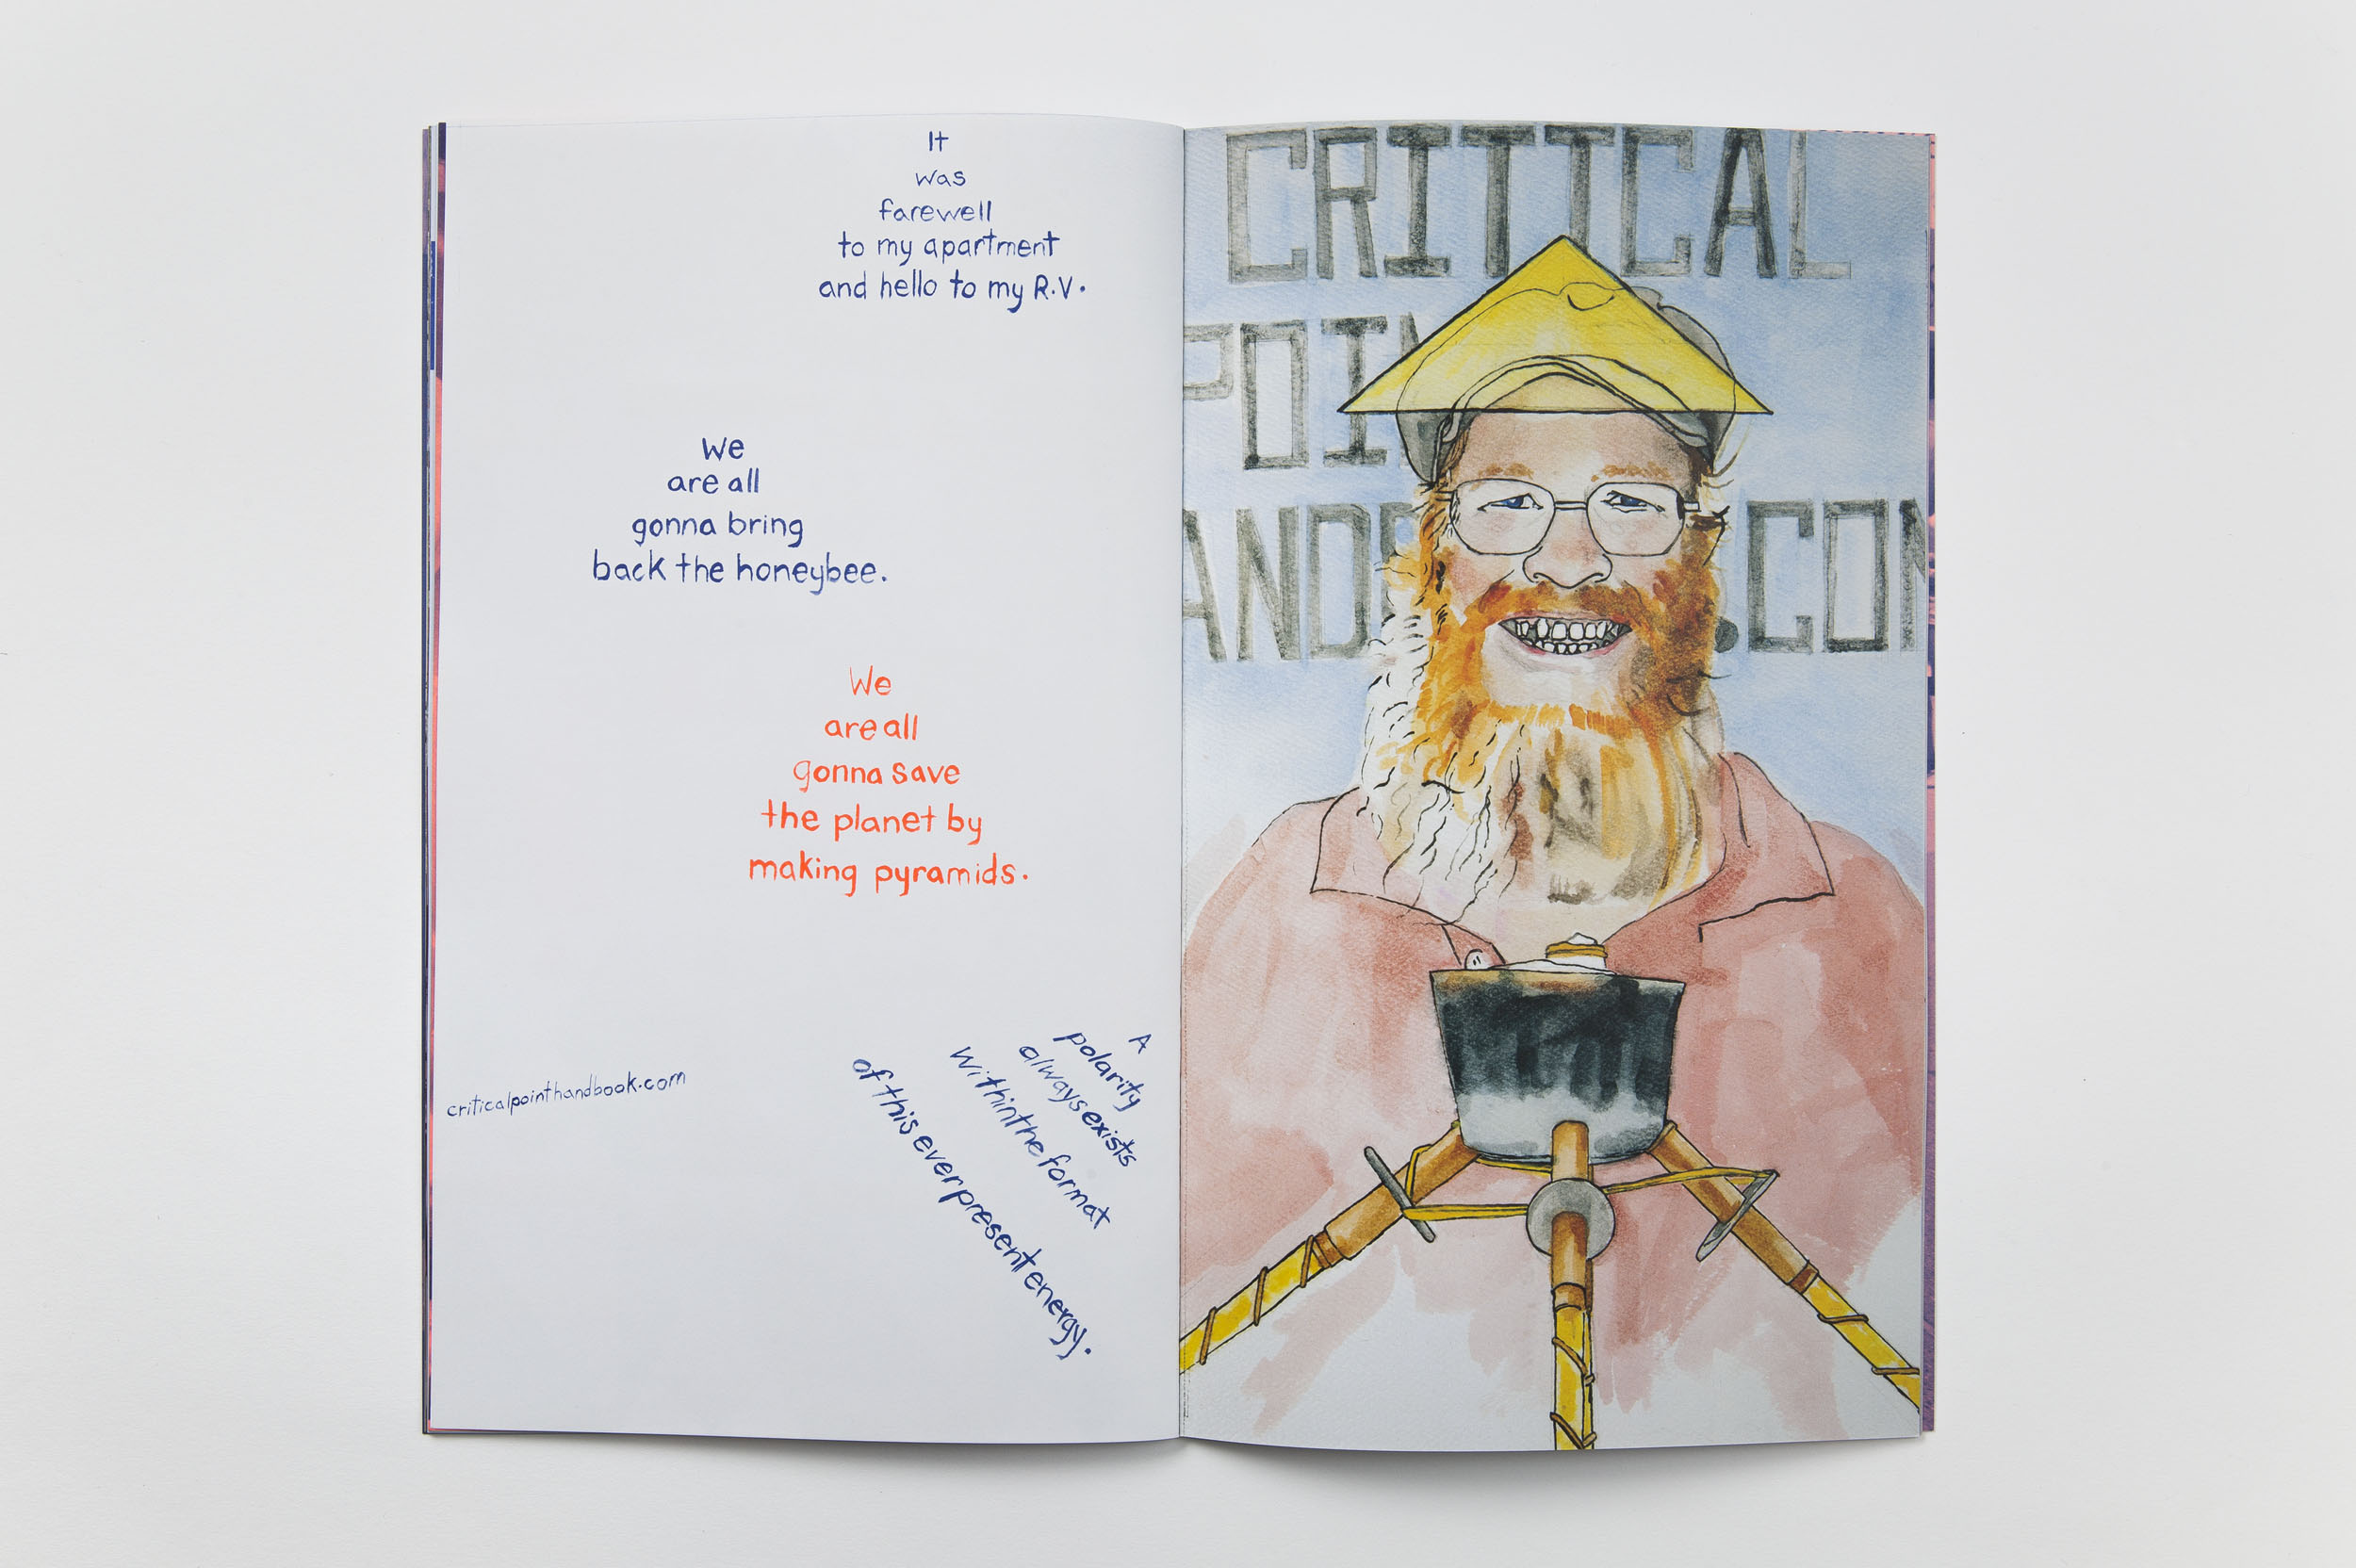 It
was
farewell
to my apartment
and hello to my R.V.
We
are all
gonna bring
back the honeybee.
We
are all
gonna save
the planet by
making pyramids.
criticalpointhandbook.com
A
polarity
always exists
within the format
of this ever present energy.
CRITICAL
POIN
AND .COM